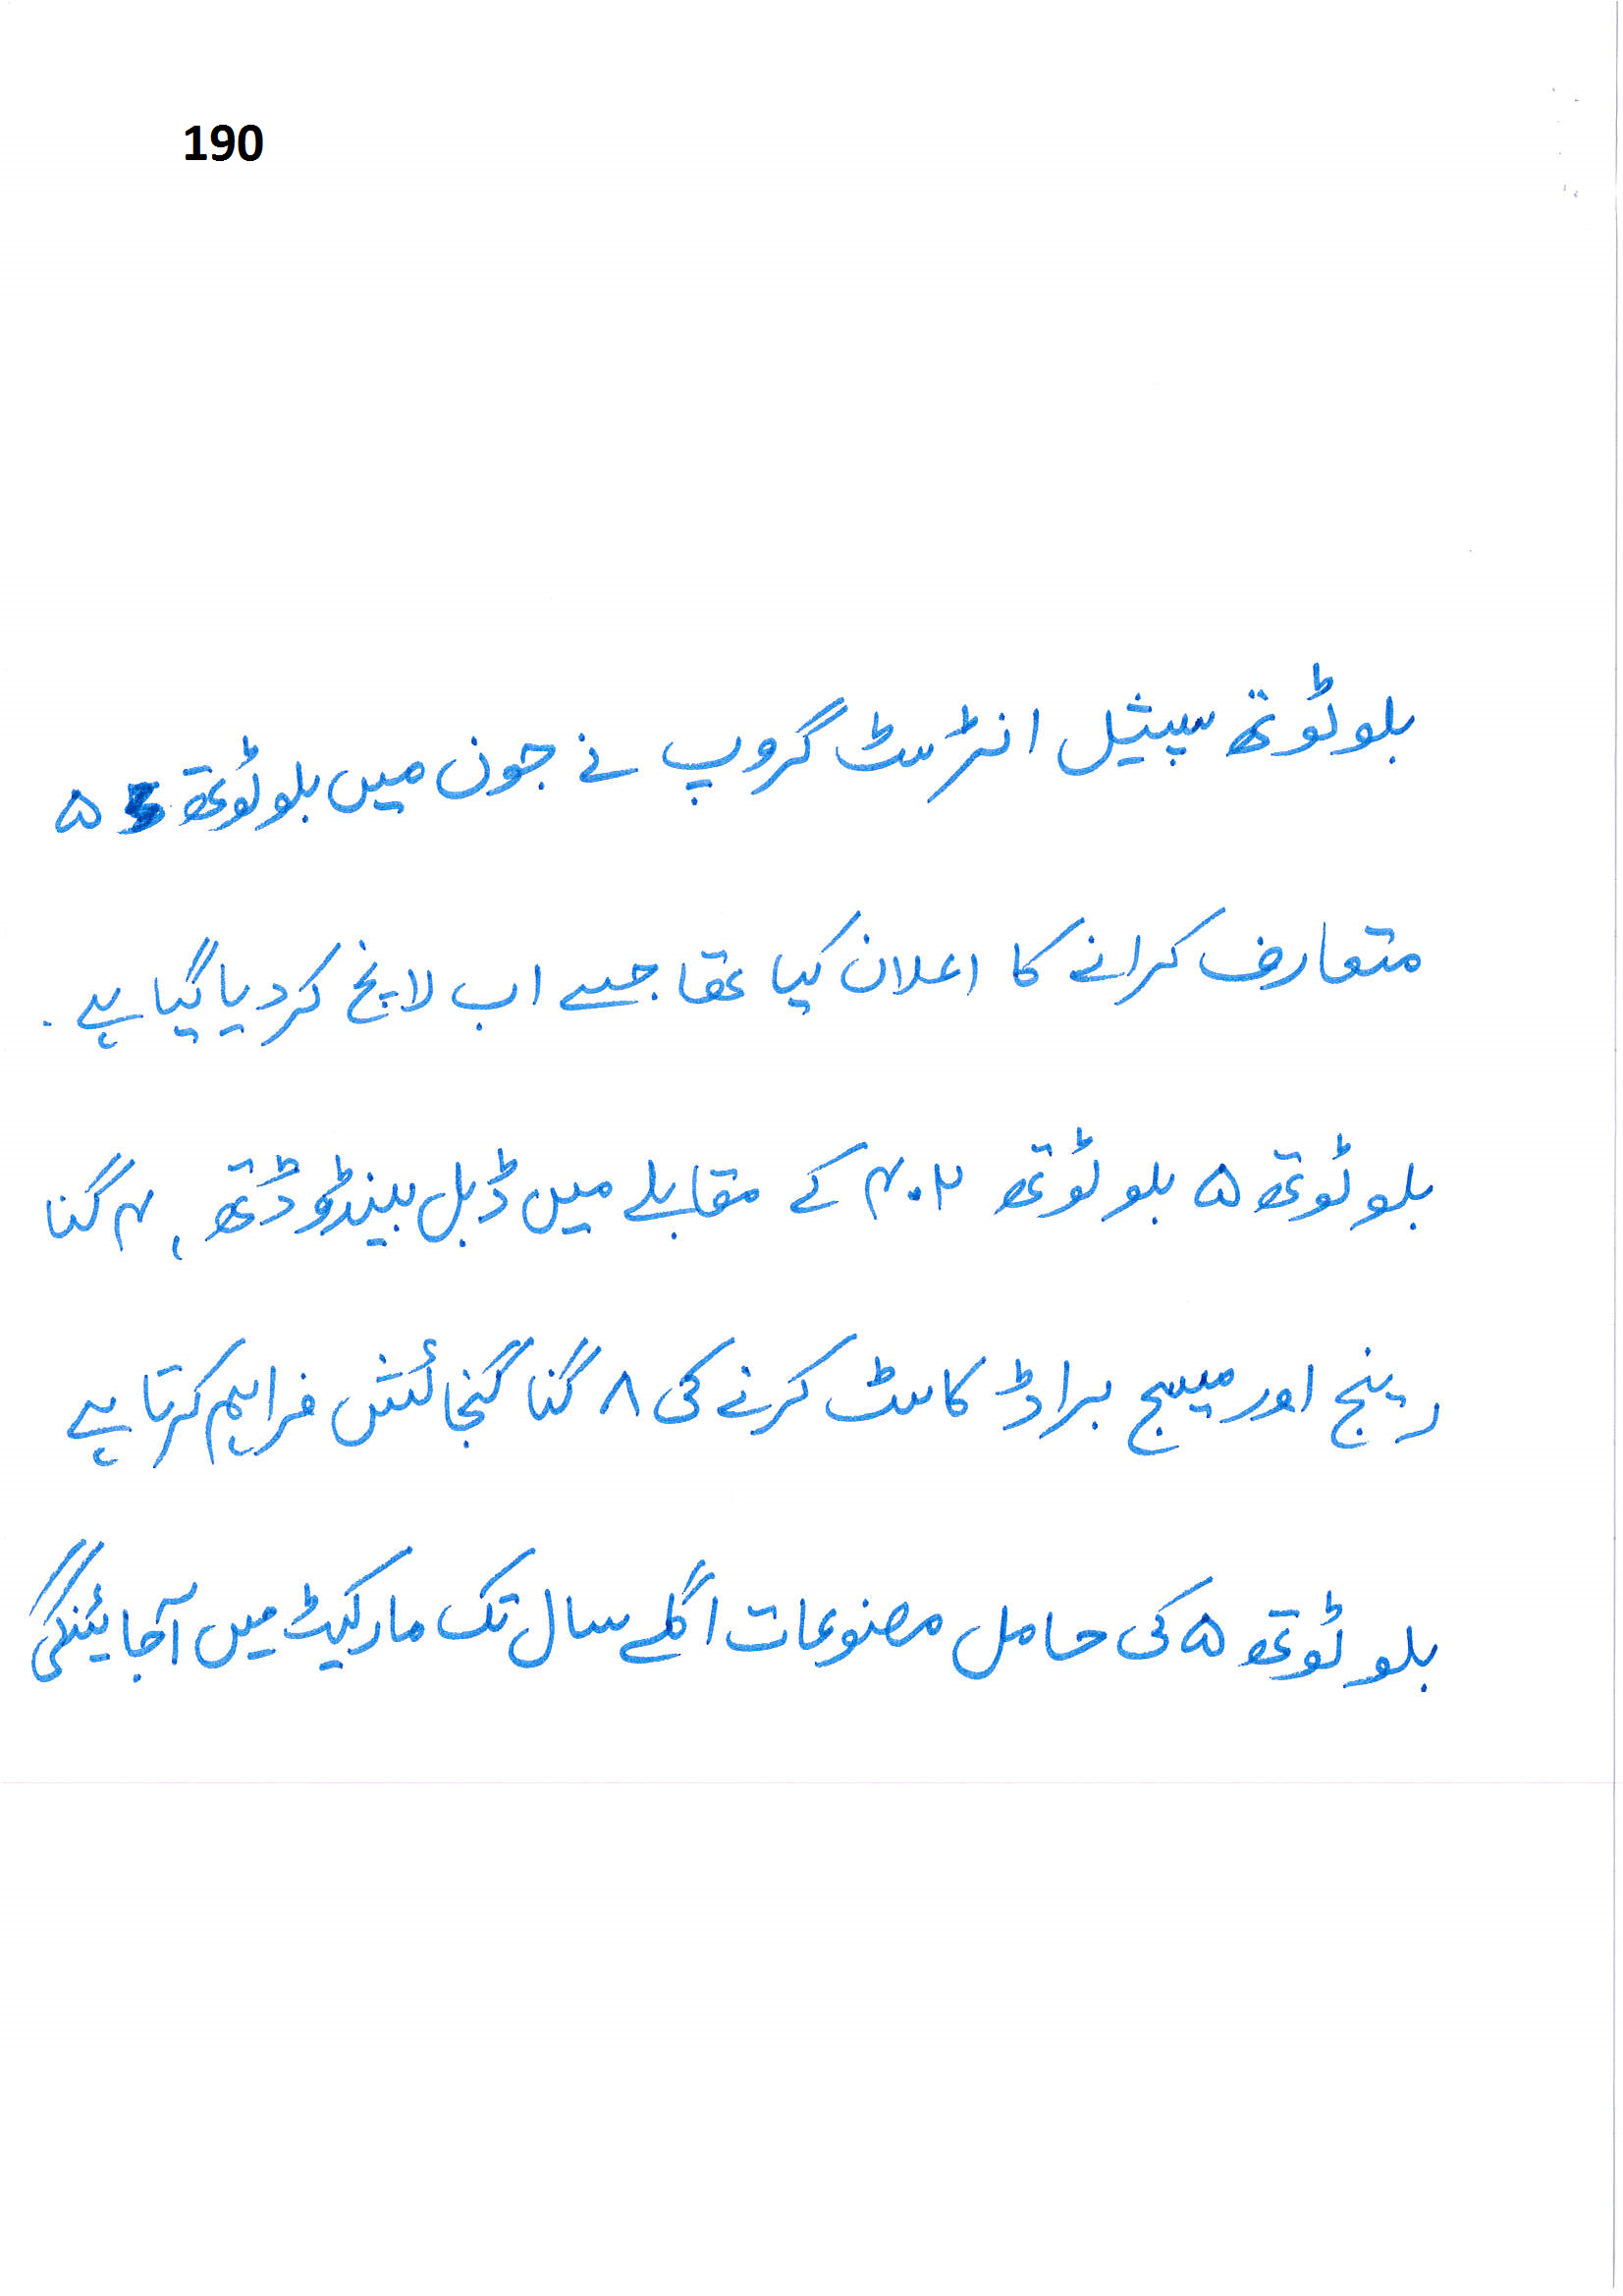 190
بلوٹوتھ سپیشل انٹرسٹ گروپ نے جون میں بلوٹوتھ ۵
متعارف کرانے کا اعلان کیا تھا جسے اب لانچ کردیا گیا ہے۔
بلوٹوتھ ۵ بلوٹوتھ ۴.۲ کے مقابلے میں ڈبل بینڈوڈتھ، ۴ گنا
رینج اور میسج براڈ کاسٹ کرنے کی ۸ گنا گنجائش فراہم کرتا ہے
بلوٹوتھ ۵ کی حامل مصنوعات اگلے سال تک مارکیٹ میں آجائینگی